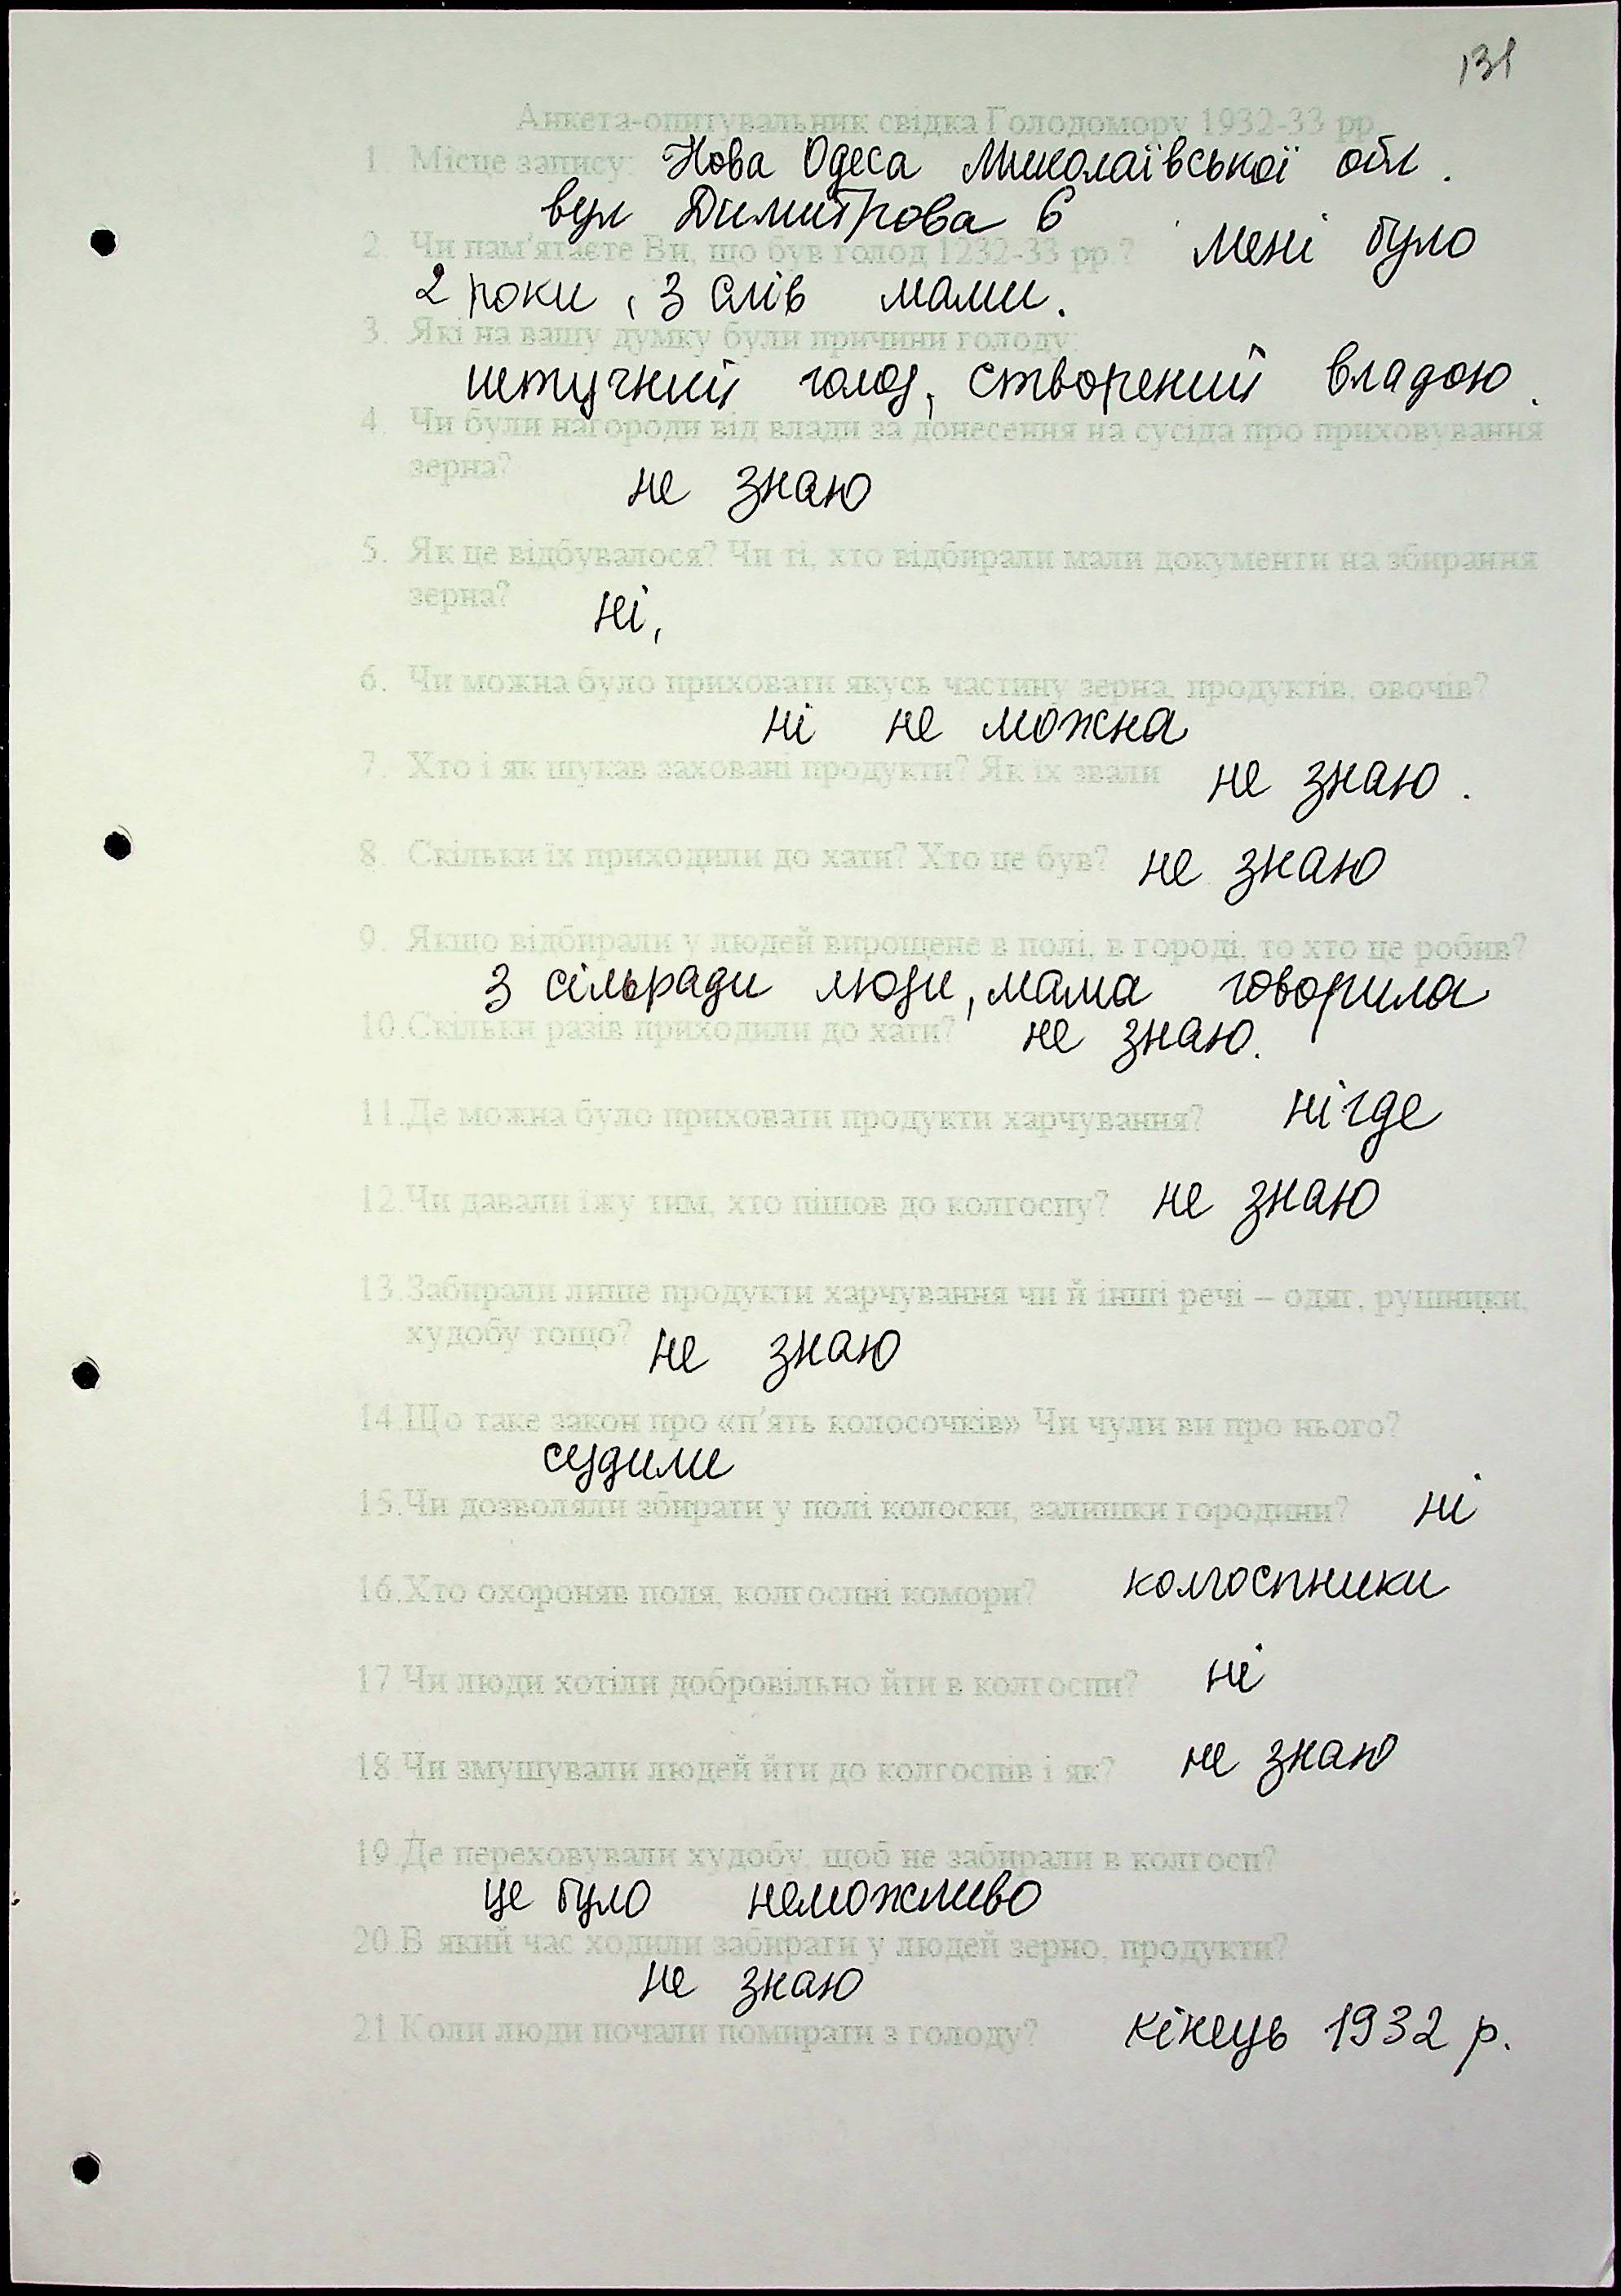 131
Анкета-опитувальник свідка Голодомору 1932-33 рр
1. Місце запису: Нова Одеса Миколаївської обл.
вул Димитрова 6
2. Чи пам'ятаєте Ви, що був голод 1232-33 рр.? Мені було
2 роки, з слів мами.
3. Які на вашу думку були причини голоду:
штучний голод, створений владою.
4. Чи були нагороди від влади за донесення на сусіда про приховування
зерна? не знаю
5. Як це відбувалося? Чи ті, хто відбирали мали документи на збирання
зерна? ні,
6. Чи можна було приховати якусь частину зерна, продуктів, овочів?
ні не можна
7. Хто і як шукав заховані продукти? Як їх звали не знаю.
8. Скільки їх приходили до хати? Хто це був? не знаю
9. Якщо відбирали у людей вирощене в полі, в городі, то хто це робив?
з сільради люди, мама говорила
10.Скільки разів приходили до хати? не знаю.
11.Де можна було приховати продукти харчування? нігде
12.Чи давали їжу тим, хто пішов до колгоспу? не знаю
13.Забирали лише продукти харчування чи й інші речі – одяг, рушники,
худобу тощо? не знаю
14.Що таке закон про «п'ять колосочків» Чи чули ви про нього?
судили
15.Чи дозволяли збирати у полі колоски, залишки городини? ні
16.Хто охороняв поля, колгоспні комори? колгоспники
17.Чи люди хотіли добровільно йти в колгоспи? ні
18.Чи змушували людей йти до колгоспів і як? не знаю
19.Де переховували худобу, щоб не забирали в колгосп?
це було неможливо
20.В який час ходили забирати у людей зерно, продукти?
не знаю
21.Коли люди почали помирати з голоду? кінець 1932 р.